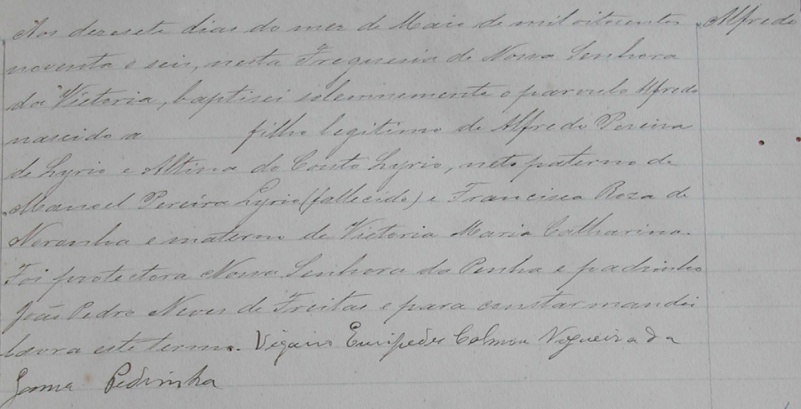 Aos dezesete dias do mez de Maio de mil oitocentos Alfredo
noventa e seis, nesta Freguesia de Nossa Senhora
da Victoria, baptisei solemnemente o parvulo Alfredo
nascido a filho legitimo de Alfredo Pereira
de Lyrio e Altina do Couto Lyrio, neto paterno de
Manoel Pereira Lyrio (fallecido) e Francisca Roza de
Noranha e materno de Victoria Maria Catharina.
Foi protectora Nossa Senhora da Penha e padrinho
João Pedro Neves de Freitas e para constar mandei
lavra este termo. Vigario Euripedes Calmon Nogueira da
Gama Pedrinha